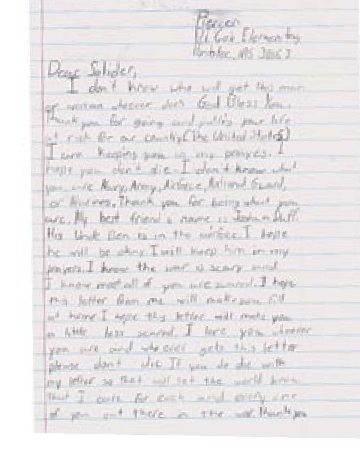 Mercer
Elementary
MS 38863
Dear Solider,
I don't know who will get this man
or woman whoever does God Bless You.
Thank you for going and putting your life
at risk for our country (The United States)
I am keeping you in my prayers. I
hope you don't die. I don't know what
you are Navy, Army, Airforce, National Guard,
or Marines. Thank you for being what you
are. My best friend's name is Joshua
His Uncle Ben is in the airforce I hope
he will be okay. I will keep him in my
prayers. I know the war is scary and
I know most all of you are scared. I hope
this letter from me will make you fill
at home I hope this letter will make you
a little less scared. I love you whoever
you are and whoever gets this letter
please don't die If you do die with
my letter so that will let the world know
that I care for each and every one
of you out there in the war. Thank you